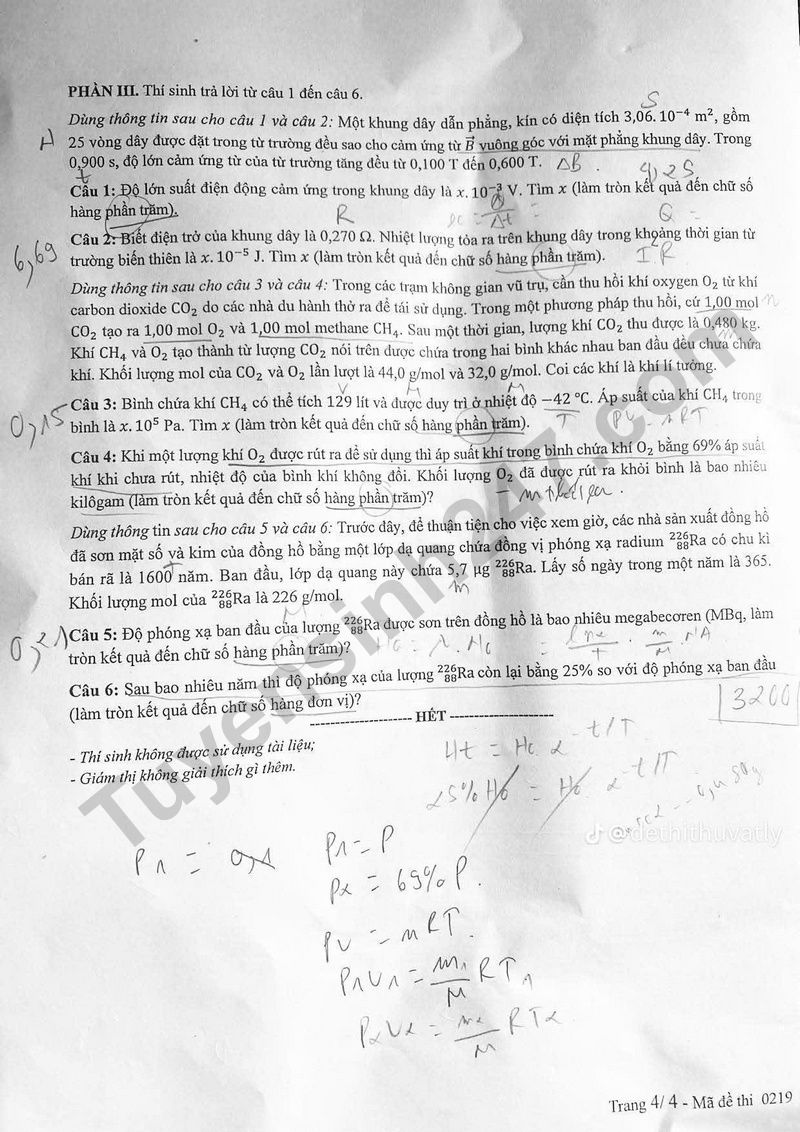 PHẦN III. Thí sinh trả lời từ câu 1 đến câu 6.
Dùng thông tin sau cho câu 1 và câu 2: Một khung dây dẫn phẳng, kín có diện tích 3,06. 10⁻⁴ m², gồm
25 vòng dây được đặt trong từ trường đều sao cho cảm ứng từ B⃗ vuông góc với mặt phẳng khung dây. Trong
0,900 s, độ lớn cảm ứng từ của từ trường tăng đều từ 0,100 T đến 0,600 T.
Câu 1: Độ lớn suất điện động cảm ứng trong khung dây là x. 10⁻³ V. Tìm x (làm tròn kết quả đến chữ số
hàng phần trăm).
Câu 2: Biết điện trở của khung dây là 0,270 Ω. Nhiệt lượng tỏa ra trên khung dây trong khoảng thời gian từ
trường biến thiên là x. 10⁻⁵ J. Tìm x (làm tròn kết quả đến chữ số hàng phần trăm).
Dùng thông tin sau cho câu 3 và câu 4: Trong các trạm không gian vũ trụ, cần thu hồi khí oxygen O₂ từ khí
carbon dioxide CO₂ do các nhà du hành thở ra để tái sử dụng. Trong một phương pháp thu hồi, cứ 1,00 mol
CO₂ tạo ra 1,00 mol O₂ và 1,00 mol methane CH₄. Sau một thời gian, lượng khí CO₂ thu được là 0,480 kg.
Khí CH₄ và O₂ tạo thành từ lượng CO₂ nói trên được chứa trong hai bình khác nhau ban đầu đều chưa chứa
khí. Khối lượng mol của CO₂ và O₂ lần lượt là 44,0 g/mol và 32,0 g/mol. Coi các khí là khí lí tưởng.
Câu 3: Bình chứa khí CH₄ có thể tích 129 lít và được duy trì ở nhiệt độ −42 °C. Áp suất của khí CH₄ trong
bình là x. 10⁵ Pa. Tìm x (làm tròn kết quả đến chữ số hàng phần trăm).
Câu 4: Khi một lượng khí O₂ được rút ra để sử dụng thì áp suất khí trong bình chứa khí O₂ bằng 69% áp suất
khí khi chưa rút, nhiệt độ của bình khí không đổi. Khối lượng O₂ đã được rút ra khỏi bình là bao nhiêu
kilôgam (làm tròn kết quả đến chữ số hàng phần trăm)?
Dùng thông tin sau cho câu 5 và câu 6: Trước đây, để thuận tiện cho việc xem giờ, các nhà sản xuất đồng hồ
đã sơn mặt số và kim của đồng hồ bằng một lớp dạ quang chứa đồng vị phóng xạ radium ²²⁶₈₈Ra có chu kì
bán rã là 1600 năm. Ban đầu, lớp dạ quang này chứa 5,7 μg ²²⁶₈₈Ra. Lấy số ngày trong một năm là 365.
Khối lượng mol của ²²⁶₈₈Ra là 226 g/mol.
Câu 5: Độ phóng xạ ban đầu của lượng ²²⁶₈₈Ra được sơn trên đồng hồ là bao nhiêu megabecơren (MBq, làm
tròn kết quả đến chữ số hàng phần trăm)?
Câu 6: Sau bao nhiêu năm thì độ phóng xạ của lượng ²²⁶₈₈Ra còn lại bằng 25% so với độ phóng xạ ban đầu
(làm tròn kết quả đến chữ số hàng đơn vị)?
3200
HẾT
- Thí sinh không được sử dụng tài liệu;
- Giám thị không giải thích gì thêm.
Ht = H0 2^-t/T
25% H0 = H0 2^-t/T
@dethithuvatly
P1 = 0,1
P1 = P
P2 = 69% P.
PV = nRT.
P1V1 = m1/M RT1
P2V2 = m2/M RT2
Tuyensinh247.com
Trang 4/ 4 - Mã đề thi 0219